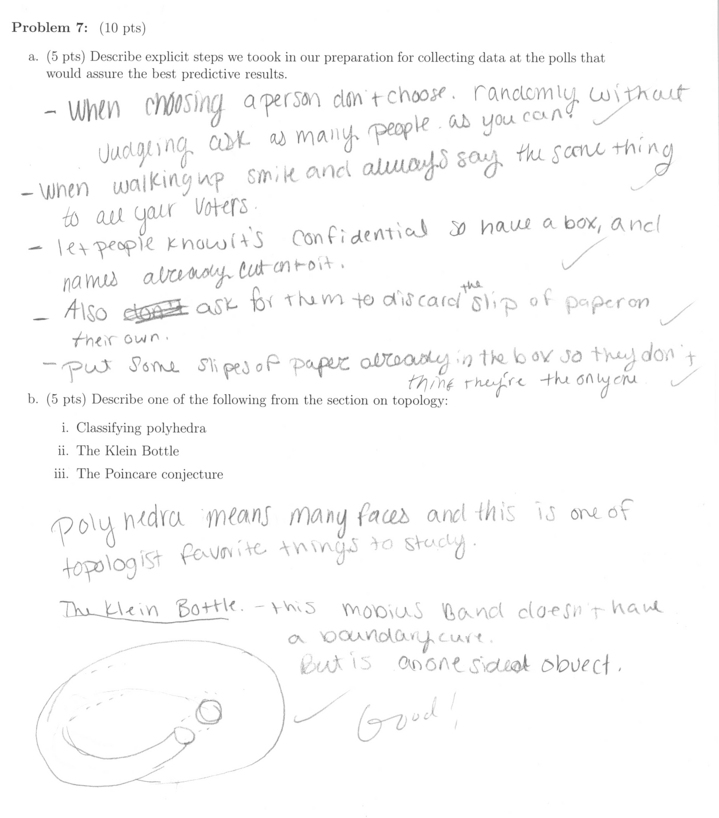 Problem 7: (10 pts)
a. (5 pts) Describe explicit steps we toook in our preparation for collecting data at the polls that
would assure the best predictive results.
- When choosing a person don't choose. randomly without
Judgeing ask as many people. as you can!
- When walking up smile and always say the same thing
to all your Voters.
- let people know it's Confidential so have a box, and
names already cut onto it.
- Also ask for them to discard the slip of paper on
their own.
- Put some slipes of paper already in the box so they don't
think they're the only one
b. (5 pts) Describe one of the following from the section on topology:
i. Classifying polyhedra
ii. The Klein Bottle
iii. The Poincare conjecture
Polyhedra means many faces and this is one of
topologist favorite things to study.
The Klein Bottle. - this mobius Band doesn't have
a boundary cure.
But is an one sided obvect.
Good!